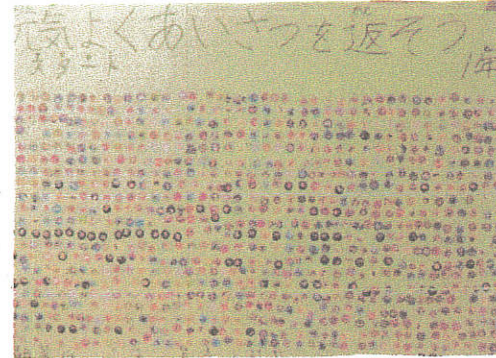 元気よくあいさつを返そう
スタート
1年